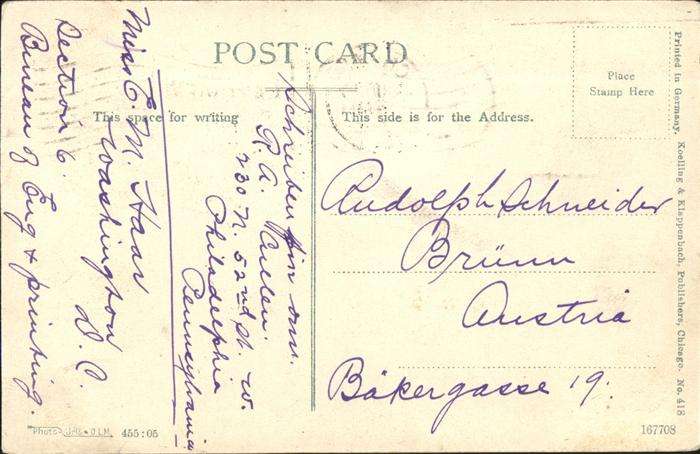 POST CARD
This space for writing
This side is for the Address.
Place
Stamp Here
Miss E. M. Haar
Washington
D. C.
Section 6.
Bureau of Eng & printing.
Schreiben
R. A. Cullen.
230 N. 52nd St. W.
Philadelphia
Pennsylvania
Rudolph Schneider
Brünn
Austria
Bäkergasse 19.
Printed in Germany. Koelling & Klappenbach, Publishers, Chicago. No. 418
455:05
167708